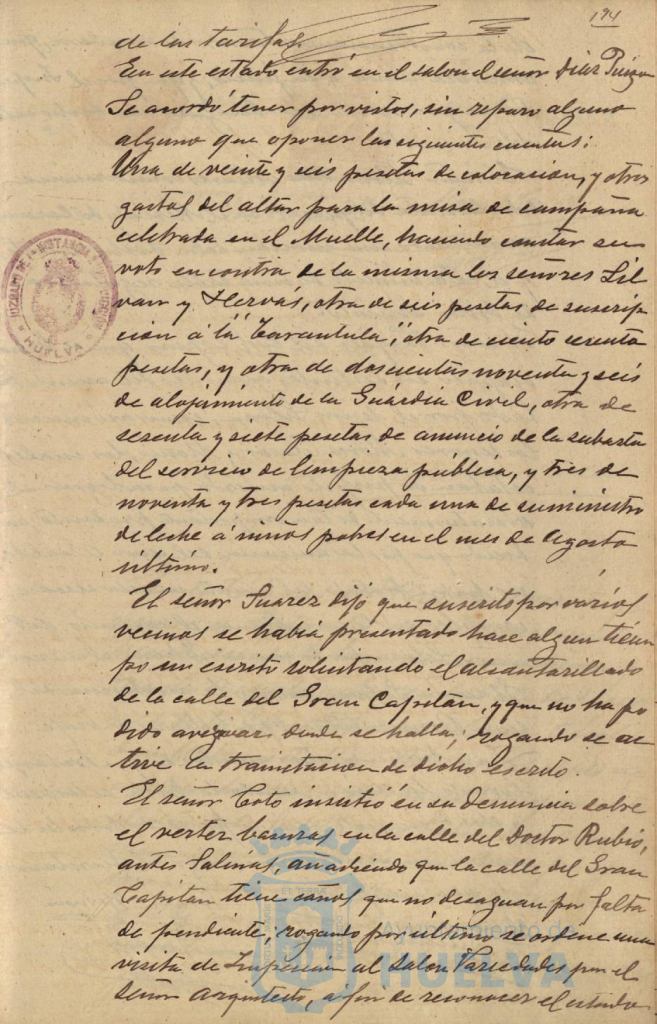 194
de las tarifas.
En este estado entró en el salon el señor Diaz
Se acordó tener por vistos, sin reparo alguno
alguno que oponer las siguientes cuentas:
Una de veinte y seis pesetas de colocacion, y otros
gastos del altar para la misa de campaña
celebrada en el Muelle, haciendo constar su
voto en contra de la misma los señores Sil
van y Hervás, otra de seis pesetas de suscrip
cion á la "Tarantula", otra de ciento
pesetas, y otra de doscientas noventa y seis
de alojamiento de la Guárdia Civil, otra de
sesenta y siete pesetas de anuncio de la subasta
del servicio de limpieza pública, y tres de
noventa y tres pesetas cada una de suministro
de leche á niños pobres en el mes de Agosto
último.
El señor Suarez dijo que suscrito por varios
vecinos se habia presentado hace algun tiem
po un escrito solicitando el alcantarillado
de la calle del Gran Capitán, y que no ha po
dido averiguar donde se halla, rogando se ac
tive la tramitacion de dicho escrito.
El señor Coto insistió en su denuncia sobre
el verter basuras en la calle del Doctor Rubio,
antes Salinas, añadiendo que la calle del Gran
Capitan tiene caños que no desaguan por falta
de pendiente; rogando por último se ordene una
visita de Inspeccion al Salon Variedades por el
señor Arquitecto, á fin de reconocer el estado
JUZGADO DE 1ª INSTANCIA
HUELVA
Ayuntamiento de
HUELVA